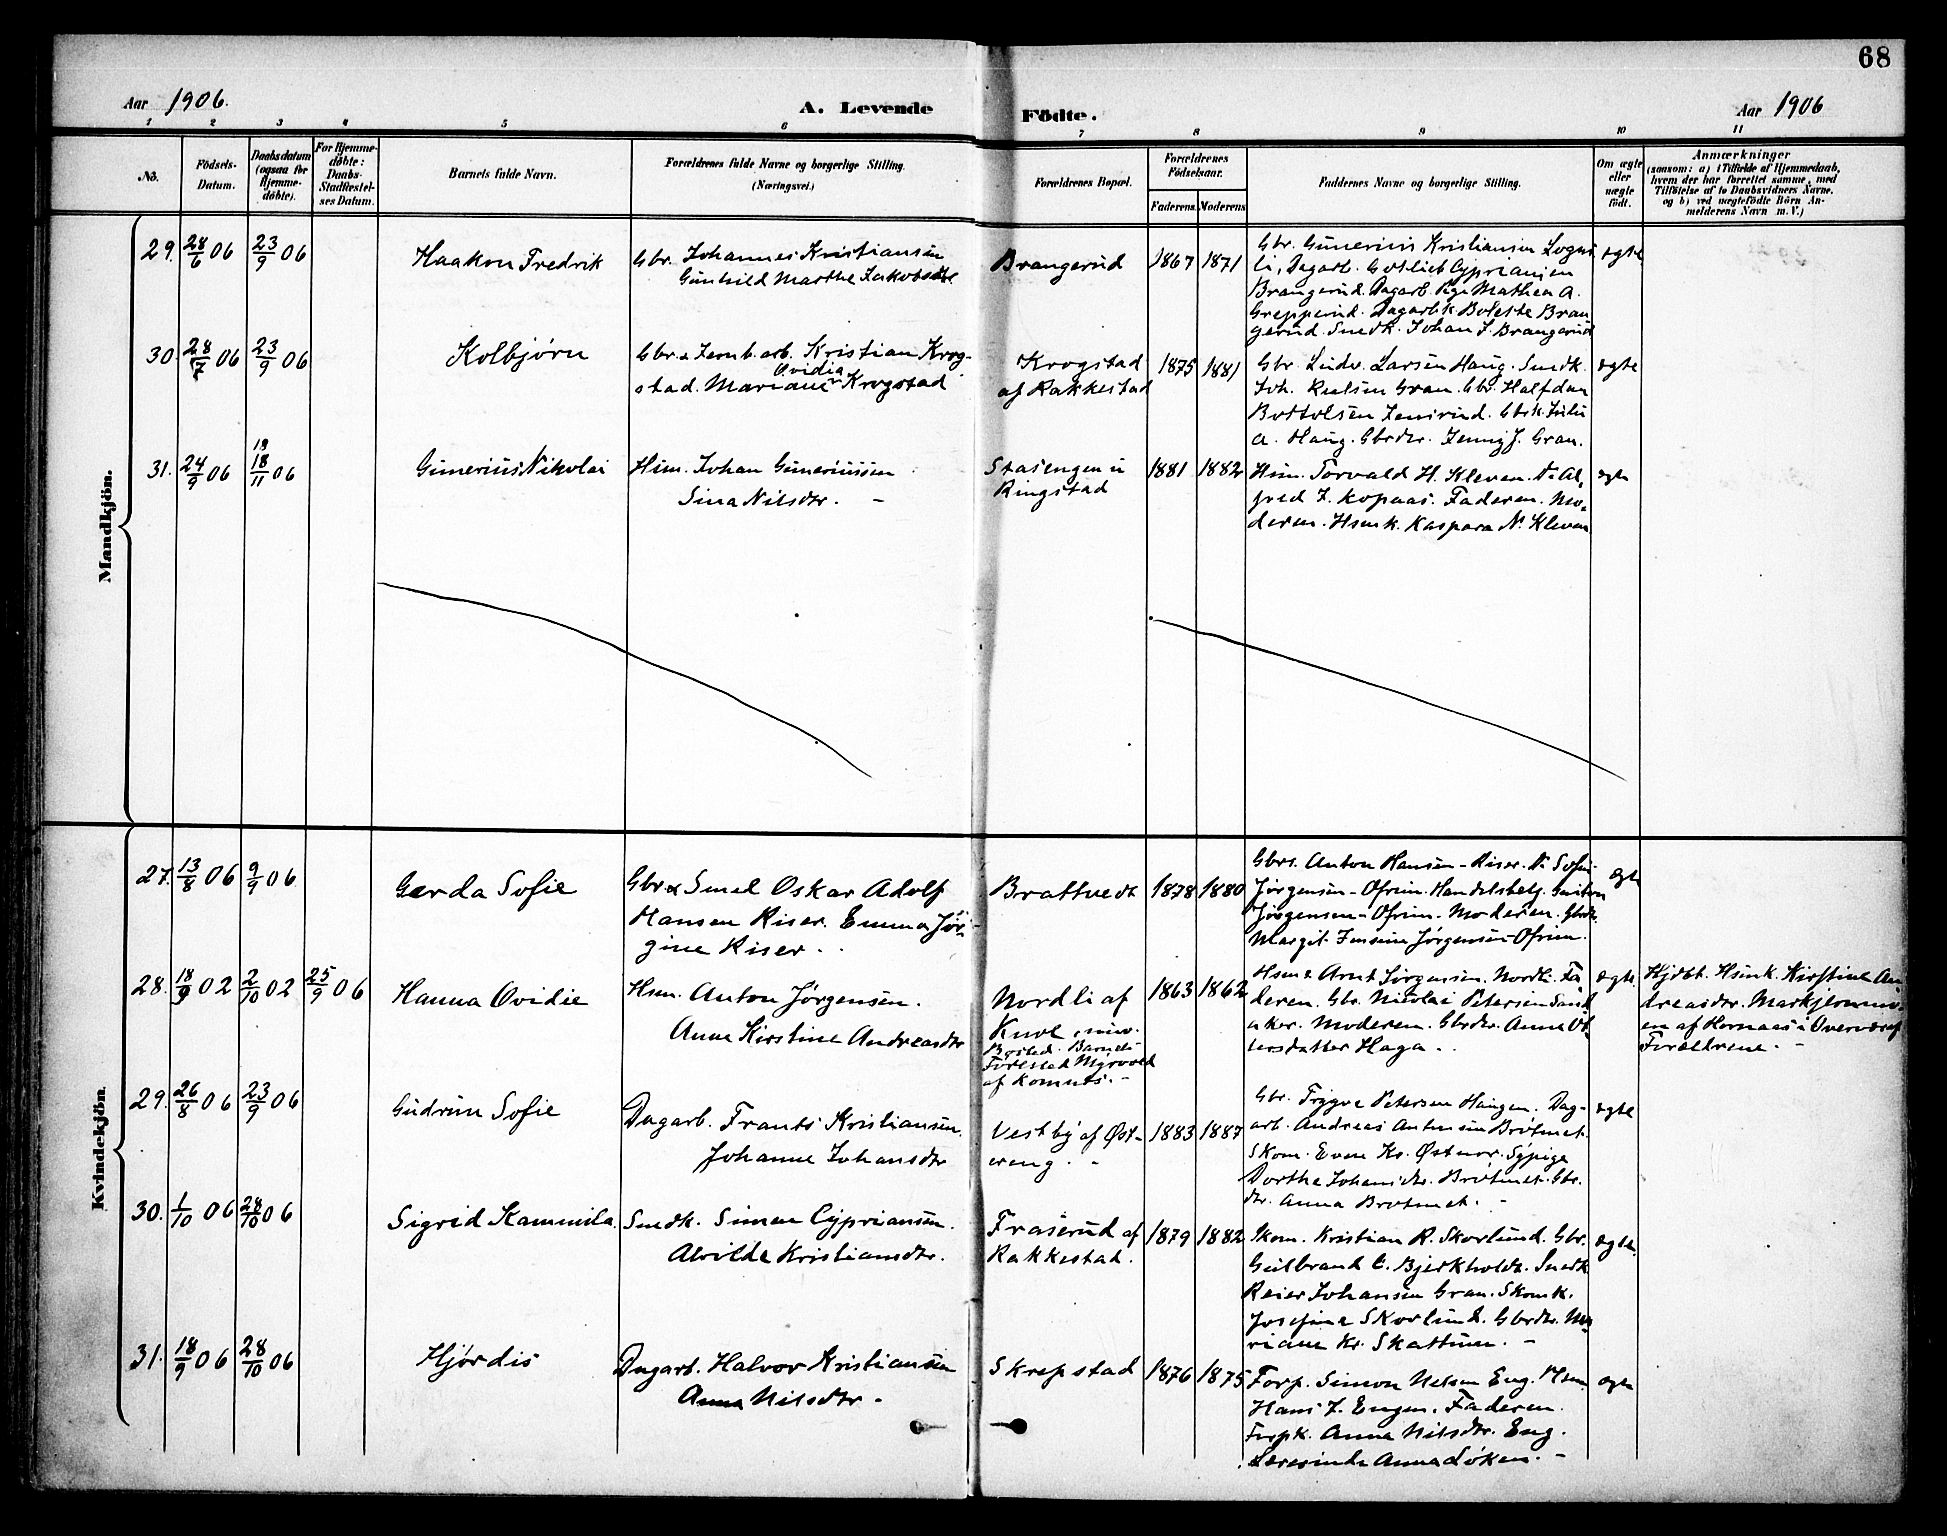 68
Aar 1906.
A. Levende
Födte.
Aar 1906
1 2 3 4 5 6 7 8 9 10 11
No.
Födsels-
Datum.
Daabsdatum
(ogsaa for
Hjemme-
döbte).
For Hjemme-
döbte:
Daabs-
Stadfæstel-
ses Datum.
Barnets fulde Navn.
Forældrenes fulde Navne og borgerlige Stilling.
(Næringsvei.)
Forældrenes Bopæl.
Forældrenes
Födselsaar.
Faderens. Moderens.
Faddernes Navne og borgerlige Stilling.
Om ægte
eller
uægte
födt.
Anmærkninger
(saasom: a) i Tilfælde af Hjemmedaab,
hvem der har forrettet samme, med
Tilföielse af to Daabsvidners Navne.
og b) ved uægtefödte Börn An-
melderens Navn m. V.)
Mandkjön.
29. 28/6 06 23/9 06
Haakon Fredrik
Gbr. Johannes Kristiansen
Gunhild Marthe Jakobsdtr.
Brangerud
1867 1871
Gbr. Gunerius Kristiansen
li, Dagarb. Gotlieb Cypriansen
Brangerud. Dagarb. Pige Mathea A.
Grepperud. Dagarbk Bolette Bran
gerud. Snedk. Johan J. Brangerud
ægte
30. 28/7 06 23/9 06
Kolbjørn
Gbr. & Jernb.arb. Kristian Krog-
stad. Mariane Ovidia Krogstad
Krogstad
af Rakkestad
1875 1881
Gbr Ludv. Larsen Haug. Snedk.
Joh. Gran. Gbr. Halfdan
Bottolsen Gbrk. Julie
A. Haug. Gbrdtr. Jenny J. Gran.
ægte
31. 24/9 06 18/11 06
Gunerius Nikolai
Hsm. Johan Guneriussen
Sina Nilsdtr. -
Stasengen u
Ringstad
1881 1882
Hsm. Torvald H. Kleven. N. Al-
fred J. Kopaas. Faderen. Mo-
deren. Hsmk. Kaspara N. Kleven
ægte
Kvindekjön.
27. 13/8 06 9/9 06
Gerda Sofie
Gbr & Smed Oskar Adolf
Hansen Riser. Emma Jør-
gine Riser.
Brattvedt
1878 1880
Gbrs. Anton Hansen - Riser. N. Sofie
Jørgensen - Ofrim. Handelsbetj.
Jørgensen - Ofrim. Moderen. Gbrdtr.
Margit Jensine Jørgensen - Ofrim.
ægte
28. 18/9 02 2/10 02 25/9 06
Hanna Ovidie
Hsm. Anton Jørgensen.
Anne Kirstine Andreasdtr
Nordli af
Knol, nuv.
Bosted. Barnets
Fødested Myrvold
af Komnes. -
1863 1862
Hsm & Arnt Jørgensen. Nordli. Fa
deren. Gbr. Nicolai Petersen Sand
aker. Moderen. Gbrdtr. Anna Ol
versdatter Haga.
ægte.
Hjdbt. Hsmk. Kirstine An
dreasdtr.
en af Hornaas i Overværelse
Forældrene. -
29. 26/8 06 23/9 06
Gudrun Sofie
Dagarb. Frants Kristiansen.
Johanne Johansdtr
Vestby af Øst-
ereng. -
1883 1887
Gbr. Trygve Petersen Haugen. Dag-
arb. Andreas Antonsen Brøtmet.
Skom. Even Kr. Østnor. Sypige
Dorthe Johansdtr. Brøtmet. Gbr.
dtr. Anna Brøtmet. -
ægte
30. 1/10 06 28/10 06
Sigrid Kammila
Snedk. Simen Cypriansen.
Alvilde Kristiansdtr.
Fraserud af
Rakkestad.
1879 1882
Skom. Kristian R. Skorlund. Gbr.
Gulbrand C. Bjerkholdt. Snedk.
Reier Johansen Gran. Skomk.
Josefine Skorlund. Gbrdtr. Ma
riane Kr. Skattum. -
ægte.
31. 18/9 06 28/10 06
Hjørdis
Dagarb. Halvor Kristiansen
Anna Nilsdtr -
Skrepstad
1876 1875
Forp. Simon Nelsen Eng. Hsm
Hans J. Engen. Faderen.
Forpk. Anna Nilsdtr. Eng.
Lærerinde Anna Løken. -
ægte